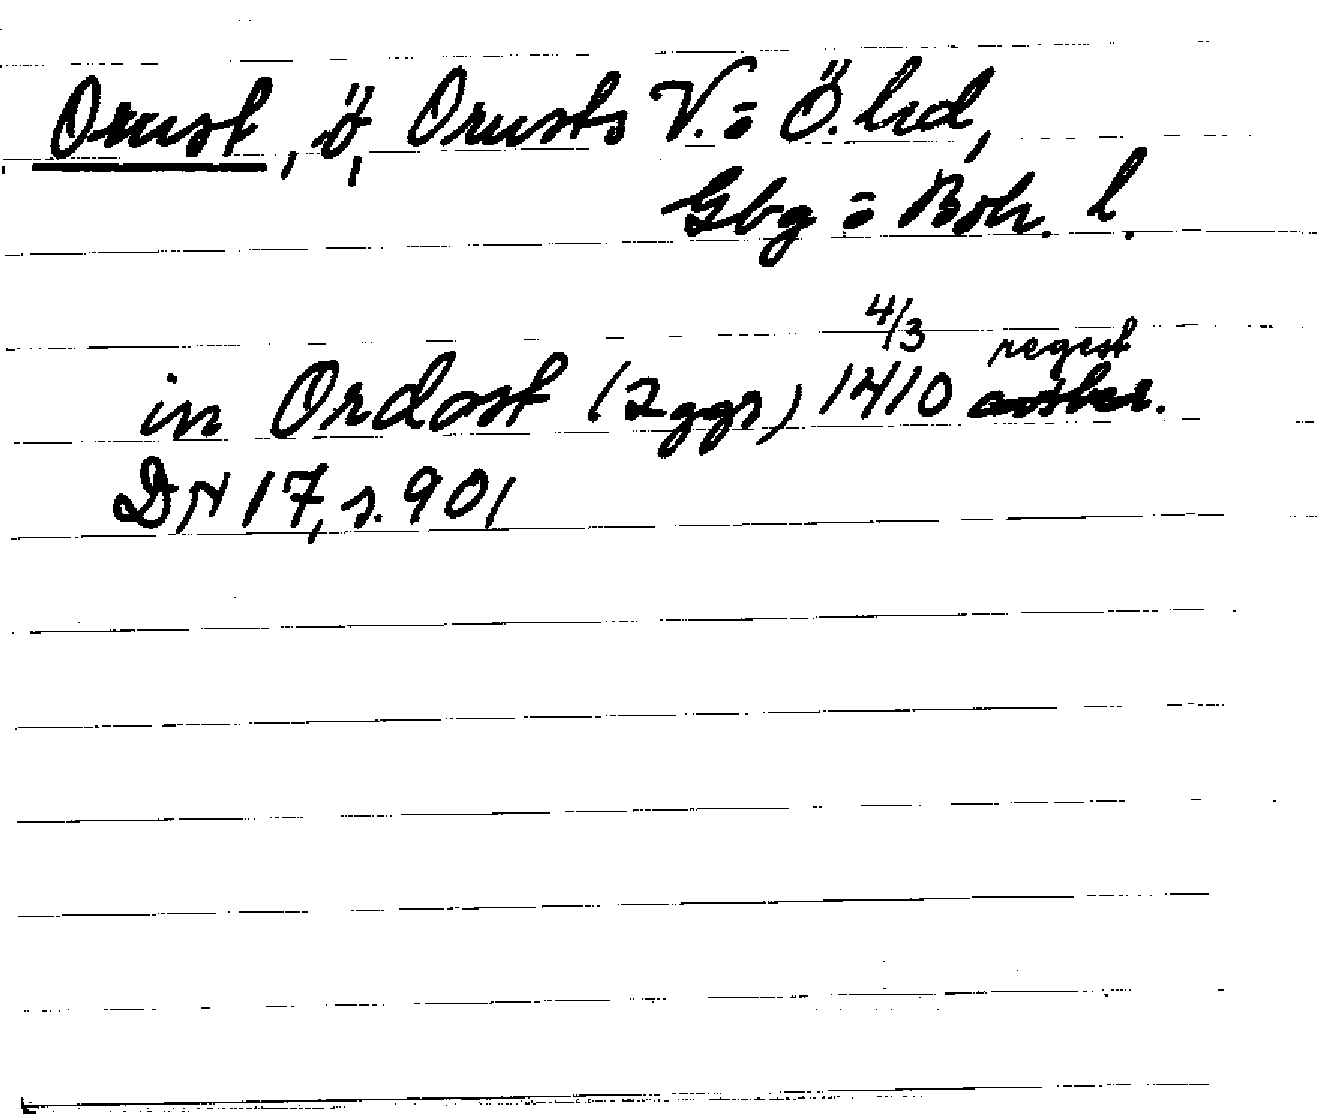 Orust, ö, Orusts V. = Ö. hd,
Gbg = Boh. l.
4/3 regest
in Ordost (2 ggr) 1410 avskr.
DN 17, s. 901